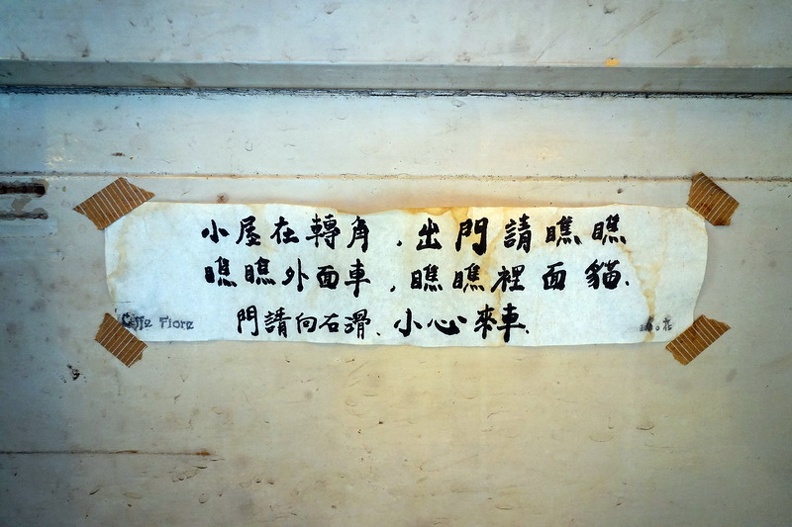 小屋在轉角，出門請瞧瞧
瞧瞧外面車，瞧瞧裡面貓、
門請向右滑、小心來車、
Caffe Fiore
花